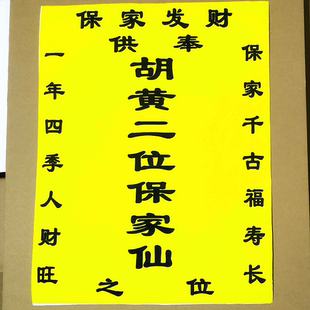 保家发财
供奉
保家千古福寿长
胡黄二位保家仙
一年四季人财旺
之位